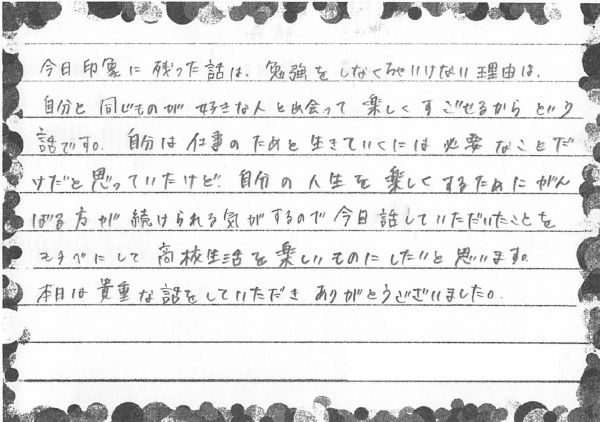 今日印象に残った話は、勉強をしなくちゃいけない理由は、
自分と同じものが好きな人と出会って楽しくすごせるからという
話です。自分は仕事のためと生きていくには必要なことだ
けだと思っていたけど、自分の人生を楽しくするためにがん
ばる方が続けられる気がするので今日話していただいたことを
モチベにして高校生活を楽しいものにしたいと思います。
本日は貴重な話をしていただきありがとうございました。